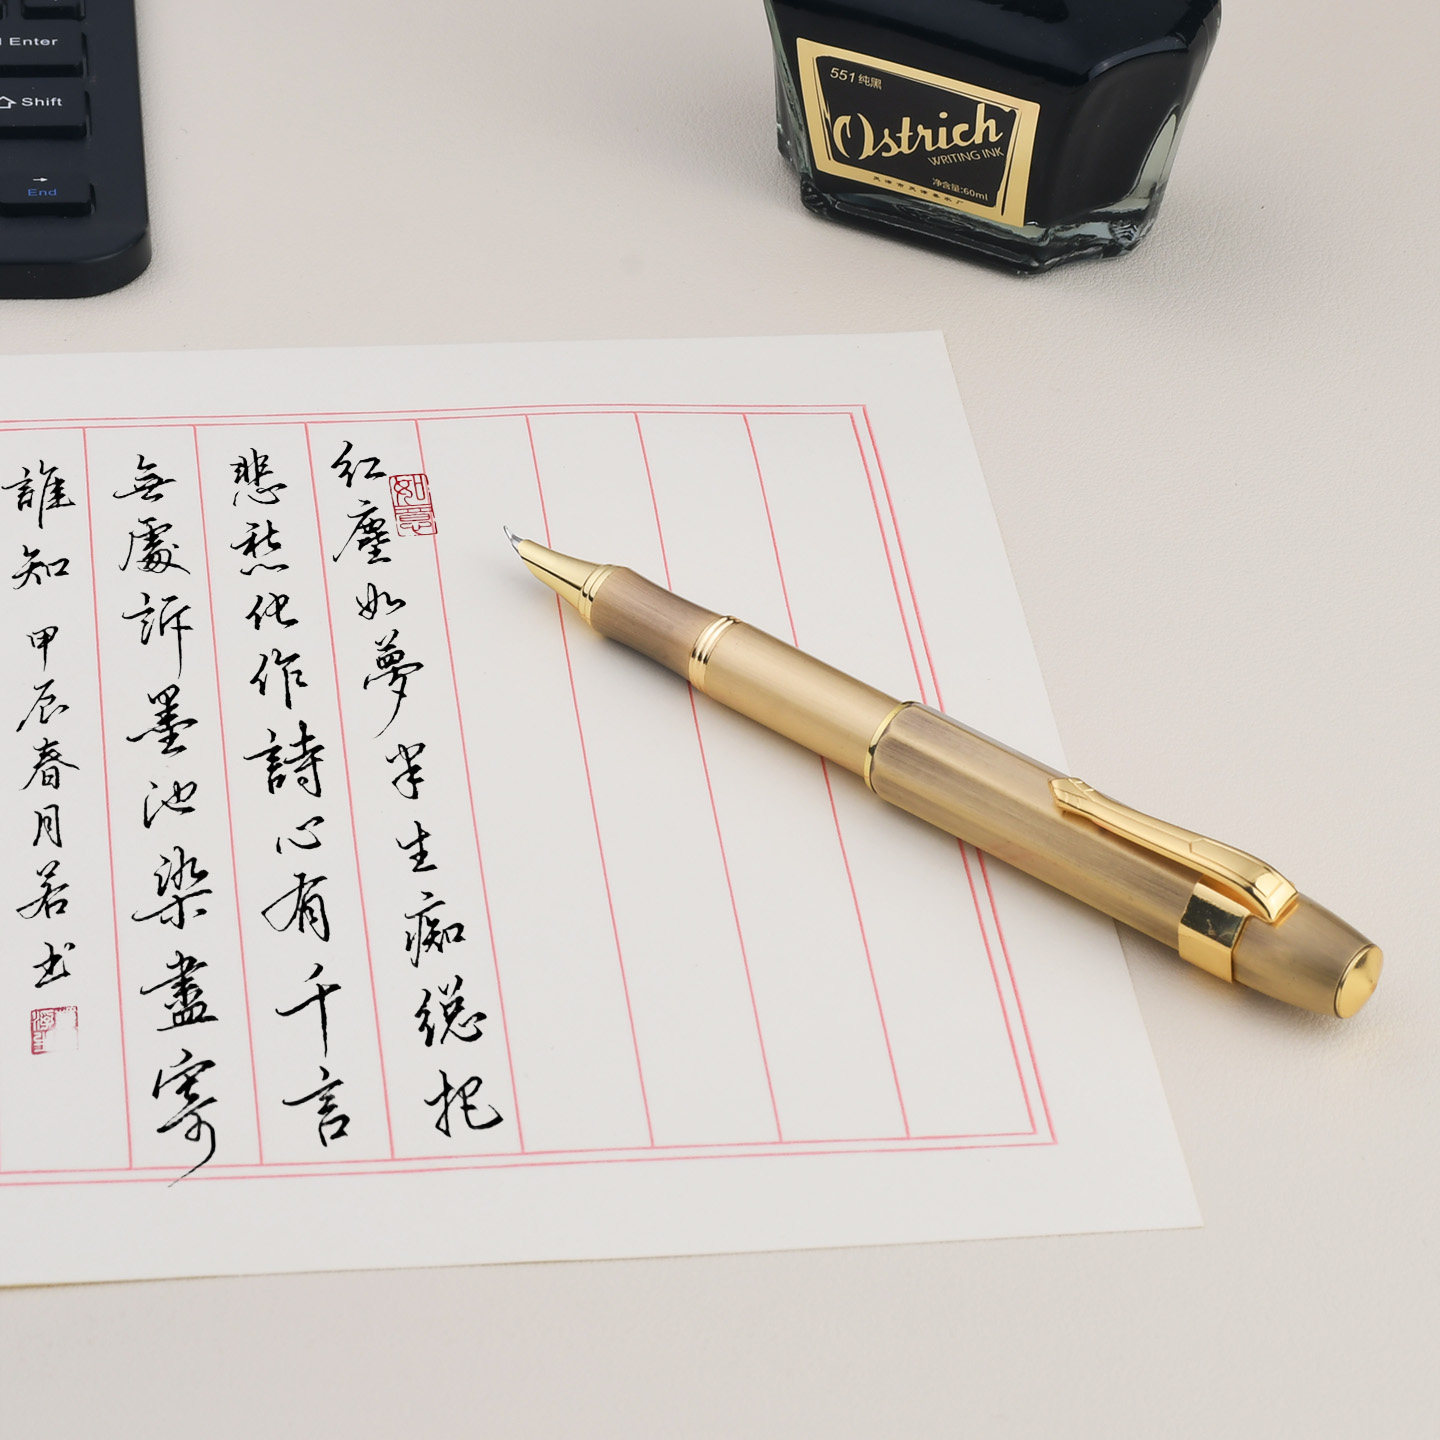 紅塵如夢半生痴總把
悲愁化作詩心有千言
無處訴墨池染盡寄
誰知 甲辰春月若书
如意
551 纯黑
Ostrich
WRITING INK
净含量:60ml
天津市天津墨水厂
Enter
Shift
End